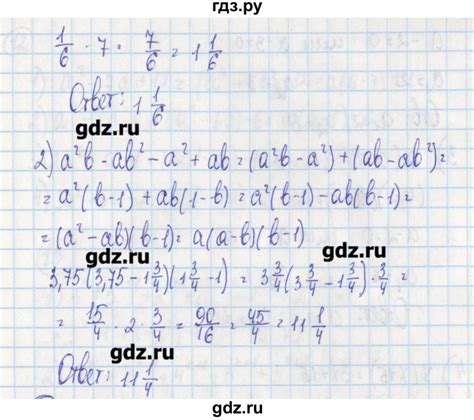 гдз.ру
1/6 · 7 = 7/6 = 1 1/6
Ответ: 1 1/6
gdz.ru
2) a²b - ab² - a² + ab = (a²b - a²) + (ab - ab²) =
= a²(b-1) + ab(1-b) = a²(b-1) - ab(b-1) =
gdz.ru
= (a² - ab)(b-1) = a(a-b)(b-1)
3,75(3,75 - 1 3/4)(1 3/4 - 1) = 3 3/4(3 3/4 - 1 3/4) · 3/4 =
= 15/4 · 2 · 3/4 = 90/16 = 45/4 = 11 1/4
gdz.ru
Ответ: 11 1/4